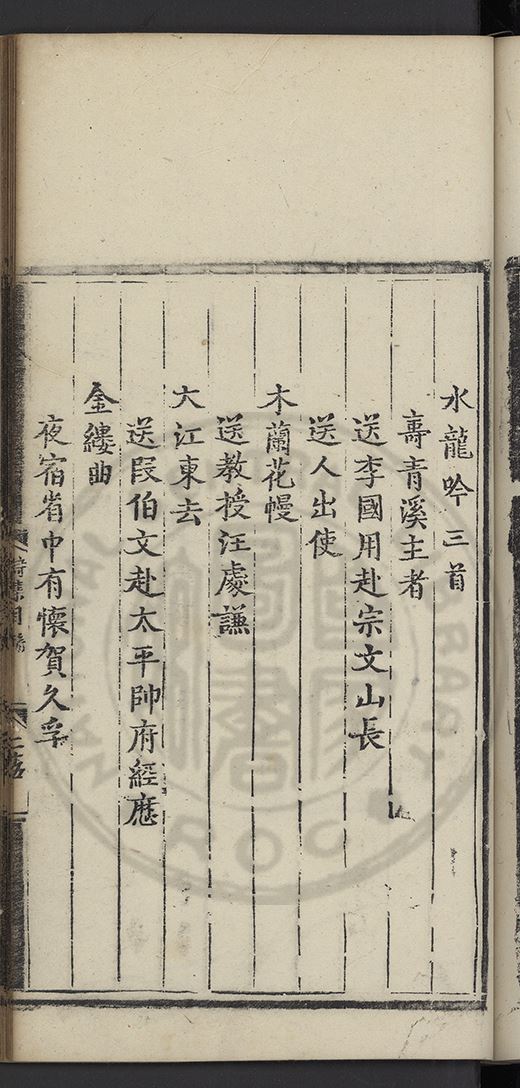 水龍吟三首
壽青溪主者
送李國用赴宗文山長
送人出使
木蘭花慢
送教授汪處謙
大江東去
送段伯文赴太平帥府經歷
金縷曲
夜宿省中有懷賀久孚